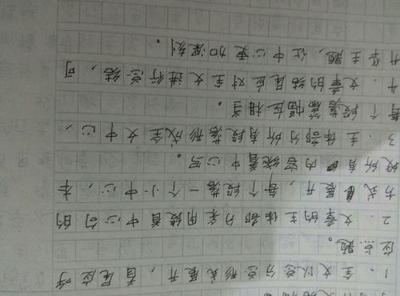 1. 全文以总分总形式展开，首尾应呼
应点题。
2. 文章主体部分采用绕着中心句的
方式展开，每个段落一个小中心，本
段所有内容绕着中心写。
3. 主体部分所有段落形成全文中心，
每个段落幅应相当
4. 文章的结尾应对全文进行总结，可
升华主题，让中心更加深刻。